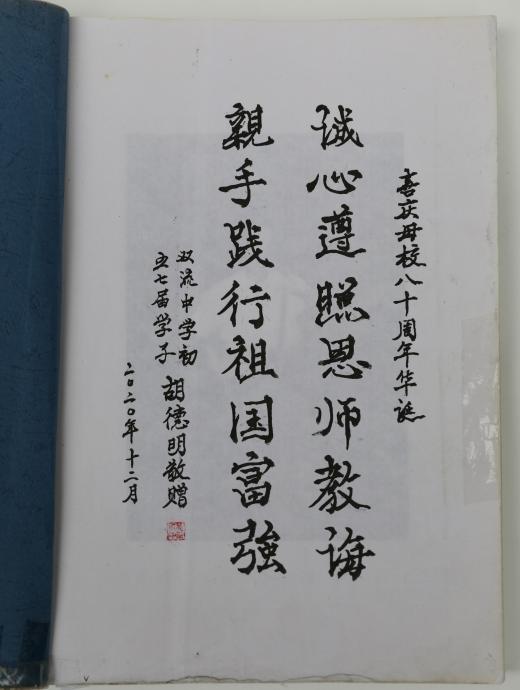 喜庆母校八十周年华诞
诚心遵照恩师教诲
親手践行祖国富強
双流中学初
五七届学子 胡德明敬赠
二〇二〇年十二月